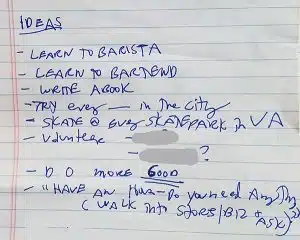 IDEAS
- LEARN TO BARISTA
- LEARN TO BARTEND
- WRITE A BOOK
- TRY every — in The City
- SKATE @ every SKATEPARK in VA
- Volunteer -
- ?
- DO MORE GOOD
- "HAVE AN Hour - Do you need AnyThing"
( WALK into STORE/BIZ + ASK)